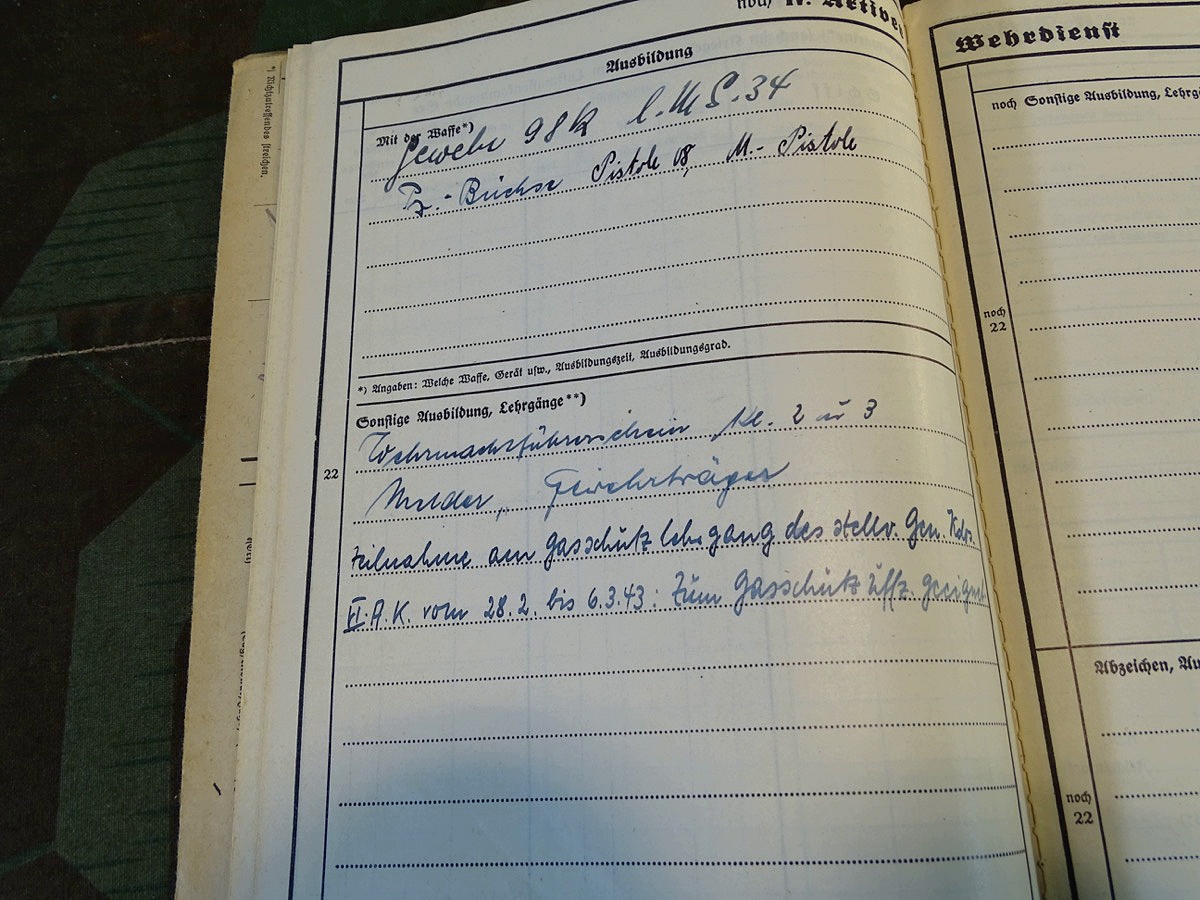 noch IV. Aktiver
Ausbildung
Mit der Waffe*)
Gewehr 98k l.M.G.34
Pz.-Büchse Pistole 08, M.-Pistole
*) Angaben: Welche Waffe, Gerät usw., Ausbildungszeit, Ausbildungsgrad.
22
Sonstige Ausbildung, Lehrgänge**)
Wehrmachtführerschein Kl. 2 u 3
Melder,
Teilnahme am Gasschutzlehrgang des stellv. Gen. Kdos.
VI. A.K. vom 28.2. bis 6.3.43: Zum Gasschutz Uffz. geeignet
*) Nichtzutreffendes streichen.
Wehrdienst
noch Sonstige Ausbildung, Lehrgä
noch
22
Abzeichen, Au
noch
22